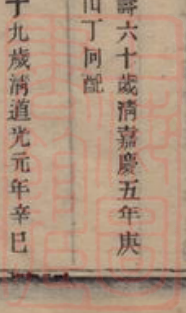 壽六十歲淸嘉慶五年庚
山丁向配
十九歲淸道光元年辛巳